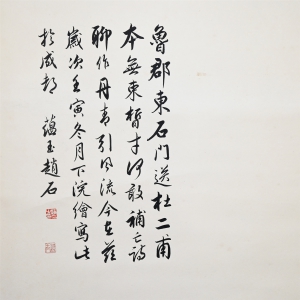 魯郡東石門送杜二甫
本無東晳才何敢補亡詩
聊作丹青引風流今在茲
歲次壬寅冬月下浣繪寫此
於成都 蘊玉趙石